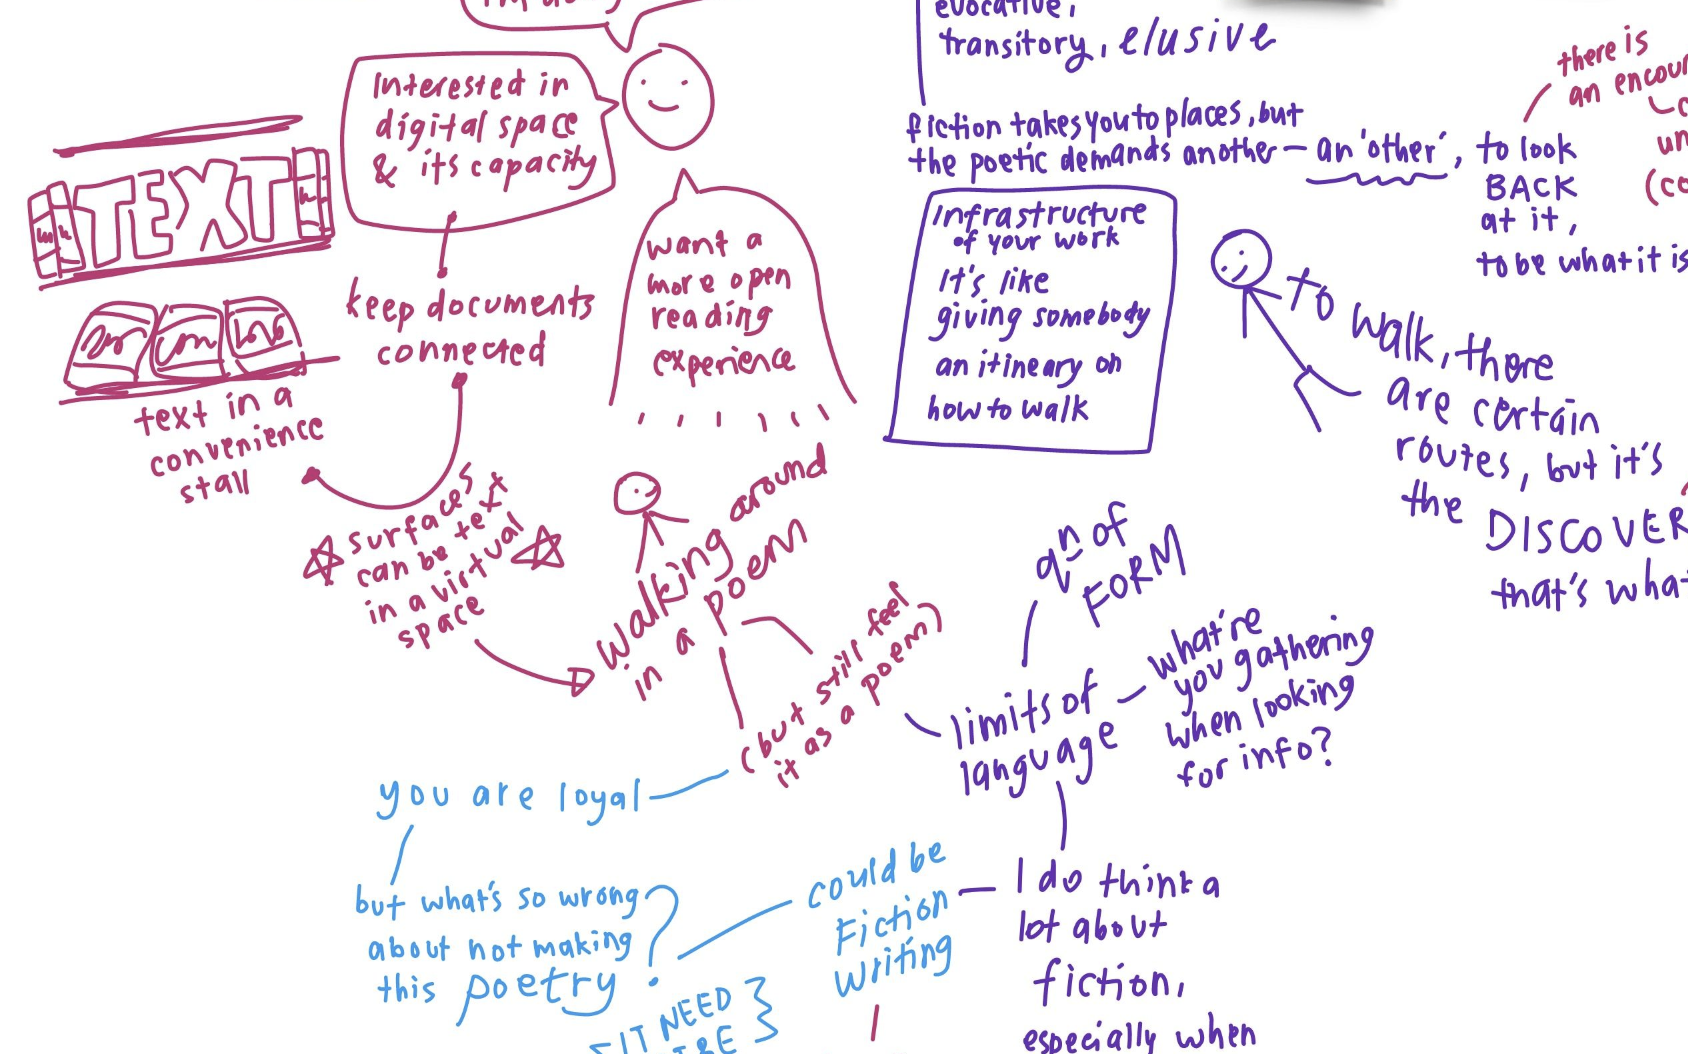 evocative,
transitory, elusive
there is
Interested in
digital space
& its capacity
fiction takes you to places, but
the poetic demands another — an 'other', to look
BACK
at it,
to be what it is
TEXT
keep documents
connected
want a
more open
reading
experience
Infrastructure
of your work
It's like
giving somebody
an itineary on
how to walk
To walk, there
are certain
routes, but it's
the DISCOVER
that's what
text in a
convenience
stall
surfaces
can be text
in a virtual
space
walking around
in a poem
(but still feel
it as a poem)
qn of
FORM
limits of
language
what're
you gathering
when looking
for info?
you are loyal
but what's so wrong
about not making
this poetry?
could be
Fiction
writing
I do think a
lot about
fiction,
especially when
IT NEED